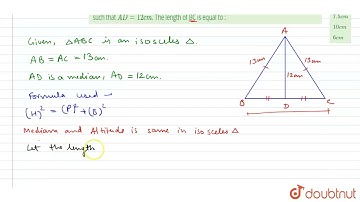 such that AD = 12cm. The length of BC is equal to :
7.5cm
10cm
6cm
Given, △ABC is an isosceles △.
AB = AC = 13cm.
AD is a median, AD = 12cm.
Formula used -
(H)² = (P)² + (B)²
Medians and Altitude is same in isosceles △
Let the length
A
13cm
13cm
12cm
B
D
C
doubtnut